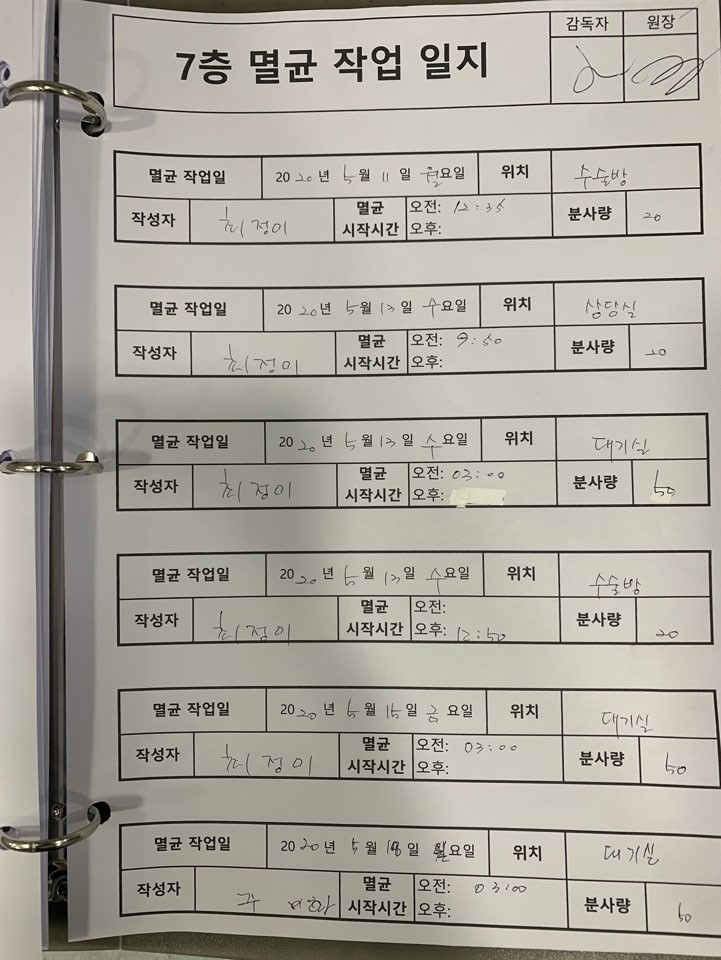 감독자 원장
7층 멸균 작업 일지
멸균 작업일 2020년 5월 11일 월요일 위치 수술방
작성자 최정이 멸균 시작시간 오전: 12:35 오후: 분사량 20
멸균 작업일 2020년 5월 13일 수요일 위치 상담실
작성자 최정이 멸균 시작시간 오전: 9:50 오후: 분사량 20
멸균 작업일 2020년 5월 13일 수요일 위치 대기실
작성자 최정이 멸균 시작시간 오전: 03:00 오후: 분사량 50
멸균 작업일 2020년 5월 13일 수요일 위치 수술방
작성자 최정이 멸균 시작시간 오전: 오후: 12:50 분사량 20
멸균 작업일 2020년 5월 15일 금요일 위치 대기실
작성자 최정이 멸균 시작시간 오전: 03:00 오후: 분사량 50
멸균 작업일 2020년 5월 18일 월요일 위치 대기실
작성자 멸균 시작시간 오전: 03:00 오후: 분사량 50